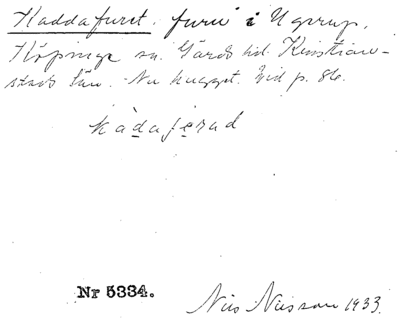 Kaddafuret. furu i Ugerup,
Köpinge sn. Gärds hd. Kristian-
stads län. Nu hugget. Vid p. 86.
kàdaferad
Nr 5334.
Nils Nilsson 1933.